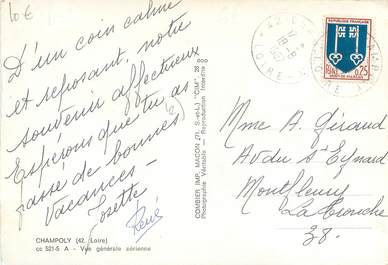 10€
D'un coin calme
et reposant, notre
souvenir affectueux
Espérons que tu as
passé de bonnes
Vacances -
Josette
René
CHAMPOLY (42. Loire)
cc 521-5 A - Vue générale aérienne
COMBIER IMP. MACON (71. S.-et-L.) "CIM"
Photographie Véritable - Reproduction Interdite
LOIRE
RÉPUBLIQUE FRANÇAISE
0,25
Mme A. Giraud
Av du St Eynard
Montfleury
La Tronche
38-